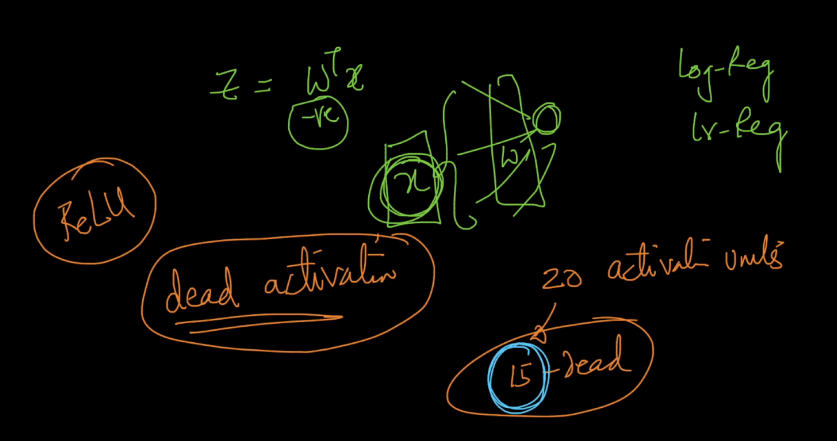 Z = WᵀX
-ve
Log-Reg
Lr-Reg
x
W
ReLU
dead activation
20 activatn units
15 - dead